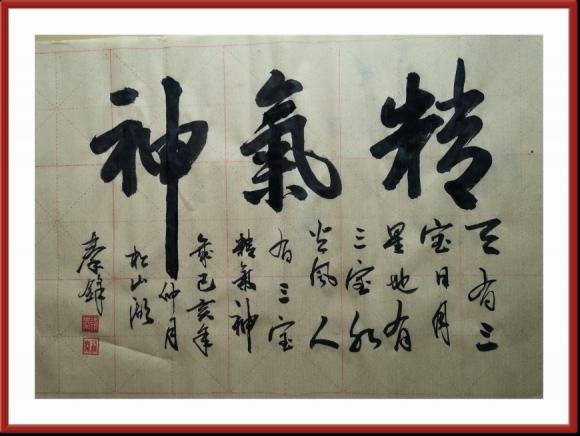 精氣神
天有三
宝日月
星地有
三宝水
火風人
有三宝
精氣神
歲己亥年
仲月
松山湖
秦鋒